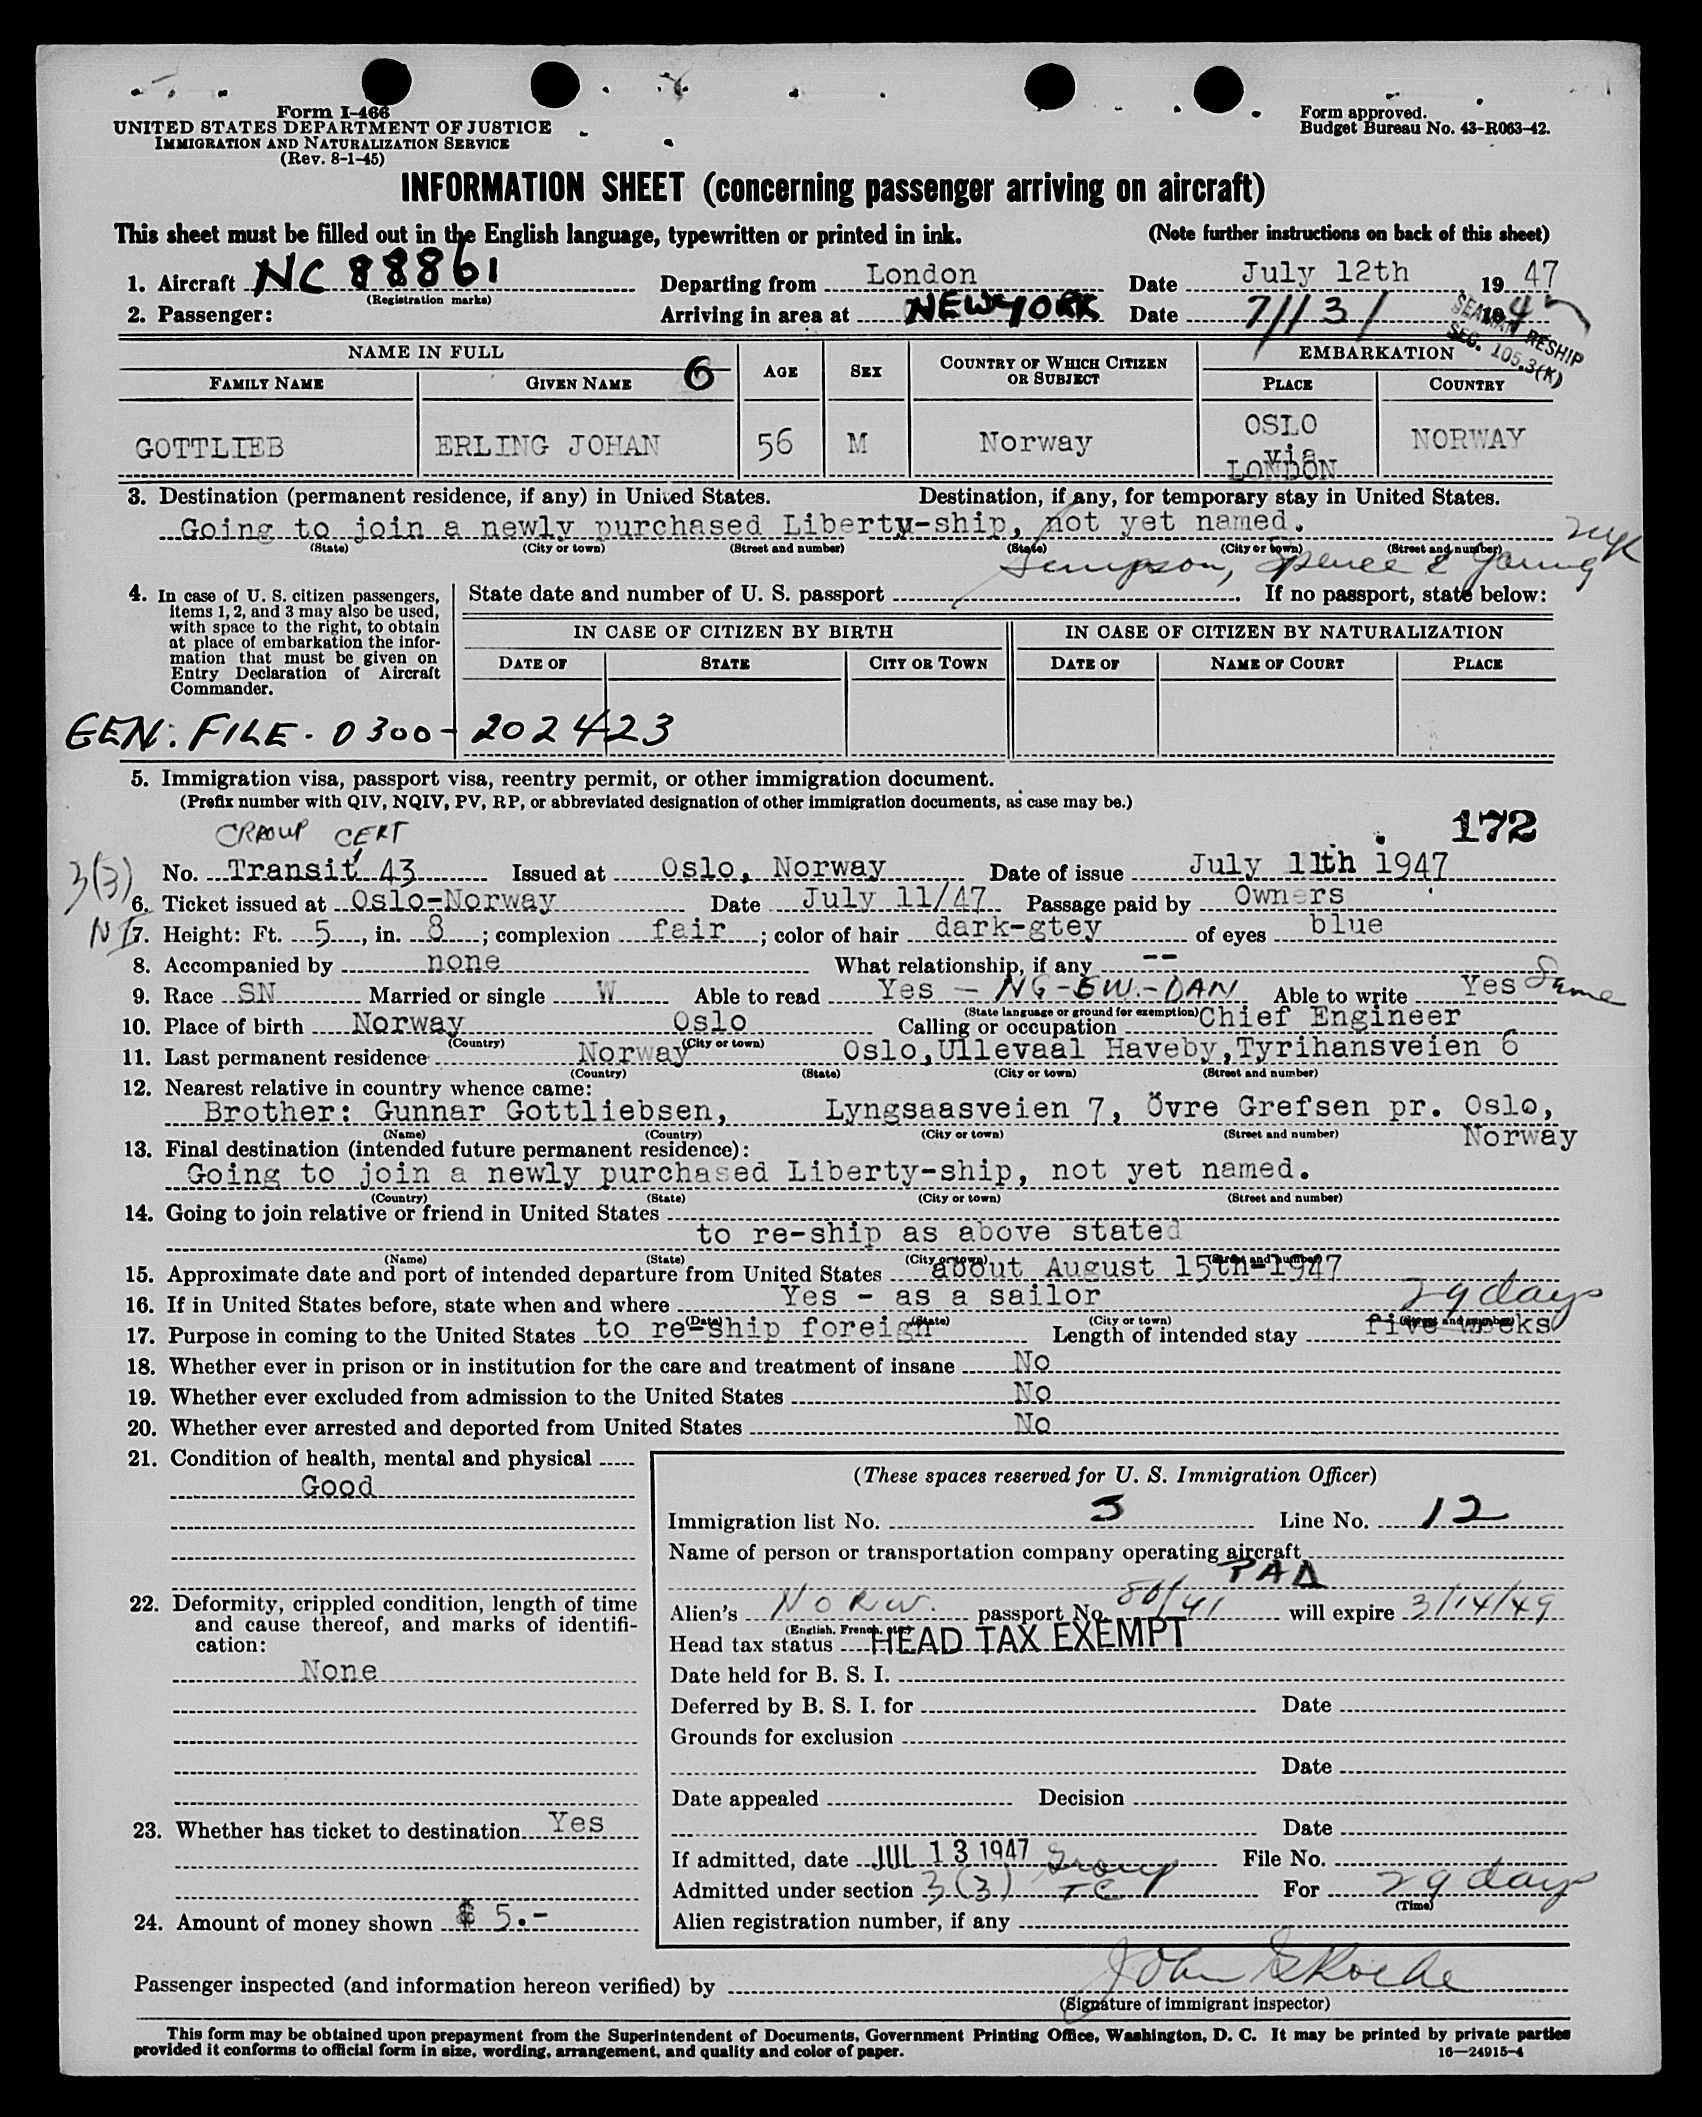 Form I-466
UNITED STATES DEPARTMENT OF JUSTICE
IMMIGRATION AND NATURALIZATION SERVICE
(Rev. 8-1-45)
Form approved.
Budget Bureau No. 43-R063-42.
INFORMATION SHEET (concerning passenger arriving on aircraft)
This sheet must be filled out in the English language, typewritten or printed in ink. (Note further instructions on back of this sheet)
1. Aircraft NC 88861 Departing from London Date July 12th 1947
(Registration marks)
2. Passenger: Arriving in area at NEW YORK Date 7/13/ 1947
SEAMAN RESHIP
SEC. 105.3(K)
NAME IN FULL 6 AGE SEX COUNTRY OF WHICH CITIZEN OR SUBJECT EMBARKATION
FAMILY NAME GIVEN NAME PLACE COUNTRY
GOTTLIEB ERLING JOHAN 56 M Norway OSLO via LONDON NORWAY
3. Destination (permanent residence, if any) in United States. Destination, if any, for temporary stay in United States.
Going to join a newly purchased Liberty-ship, not yet named.
(State) (City or town) (Street and number) (State) (City or town) (Street and number)
Sempson, Spence & Young NYK
4. In case of U. S. citizen passengers, items 1, 2, and 3 may also be used, with space to the right, to obtain at place of embarkation the information that must be given on Entry Declaration of Aircraft Commander.
State date and number of U. S. passport If no passport, state below:
IN CASE OF CITIZEN BY BIRTH IN CASE OF CITIZEN BY NATURALIZATION
DATE OF STATE CITY OR TOWN DATE OF NAME OF COURT PLACE
GEN. FILE. 0300-202423
5. Immigration visa, passport visa, reentry permit, or other immigration document.
(Prefix number with QIV, NQIV, PV, RP, or abbreviated designation of other immigration documents, as case may be.)
172
CREW CERT
3(3)
No. Transit 43 Issued at Oslo, Norway Date of issue July 11th 1947
6. Ticket issued at Oslo-Norway Date July 11/47 Passage paid by Owners
NI
7. Height: Ft. 5, in. 8; complexion fair; color of hair dark-gtey of eyes blue
8. Accompanied by none What relationship, if any --
9. Race SN Married or single W Able to read Yes - NG-SW.-DAN Able to write Yes Same
(State language or ground for exemption)
10. Place of birth Norway Oslo Calling or occupation Chief Engineer
(Country) (City or town)
11. Last permanent residence Norway Oslo,Ullevaal Haveby,Tyrihansveien 6
(Country) (State) (City or town) (Street and number)
12. Nearest relative in country whence came:
Brother: Gunnar Gottliebsen, Lyngsaasveien 7, Övre Grefsen pr. Oslo,
(Name) (Country) (City or town) (Street and number) Norway
13. Final destination (intended future permanent residence):
Going to join a newly purchased Liberty-ship, not yet named.
(Country) (State) (City or town) (Street and number)
14. Going to join relative or friend in United States
to re-ship as above stated
(Name) (State) (City or town) (Street and number)
15. Approximate date and port of intended departure from United States about August 15th-1947
16. If in United States before, state when and where Yes - as a sailor
(Date) (State) (City or town) (Street and number)
29 days
17. Purpose in coming to the United States to re-ship foreign Length of intended stay five weeks
18. Whether ever in prison or in institution for the care and treatment of insane No
19. Whether ever excluded from admission to the United States No
20. Whether ever arrested and deported from United States No
21. Condition of health, mental and physical
Good
22. Deformity, crippled condition, length of time and cause thereof, and marks of identification:
None
23. Whether has ticket to destination Yes
24. Amount of money shown $ 5.-
(These spaces reserved for U. S. Immigration Officer)
Immigration list No. 3 Line No. 12
Name of person or transportation company operating aircraft
PAA
Alien's NORW. passport No. 80/41 will expire 3/14/49
(English, French, etc.)
Head tax status HEAD TAX EXEMPT
Date held for B. S. I.
Deferred by B. S. I. for Date
Grounds for exclusion
Date
Date appealed Decision
Date
If admitted, date JUL 13 1947 Group File No.
Admitted under section 3(3) TC For 29 days
(Time)
Alien registration number, if any
Passenger inspected (and information hereon verified) by
(Signature of immigrant inspector)
This form may be obtained upon prepayment from the Superintendent of Documents, Government Printing Office, Washington, D. C. It may be printed by private parties
provided it conforms to official form in size, wording, arrangement, and quality and color of paper. 16—24915-4